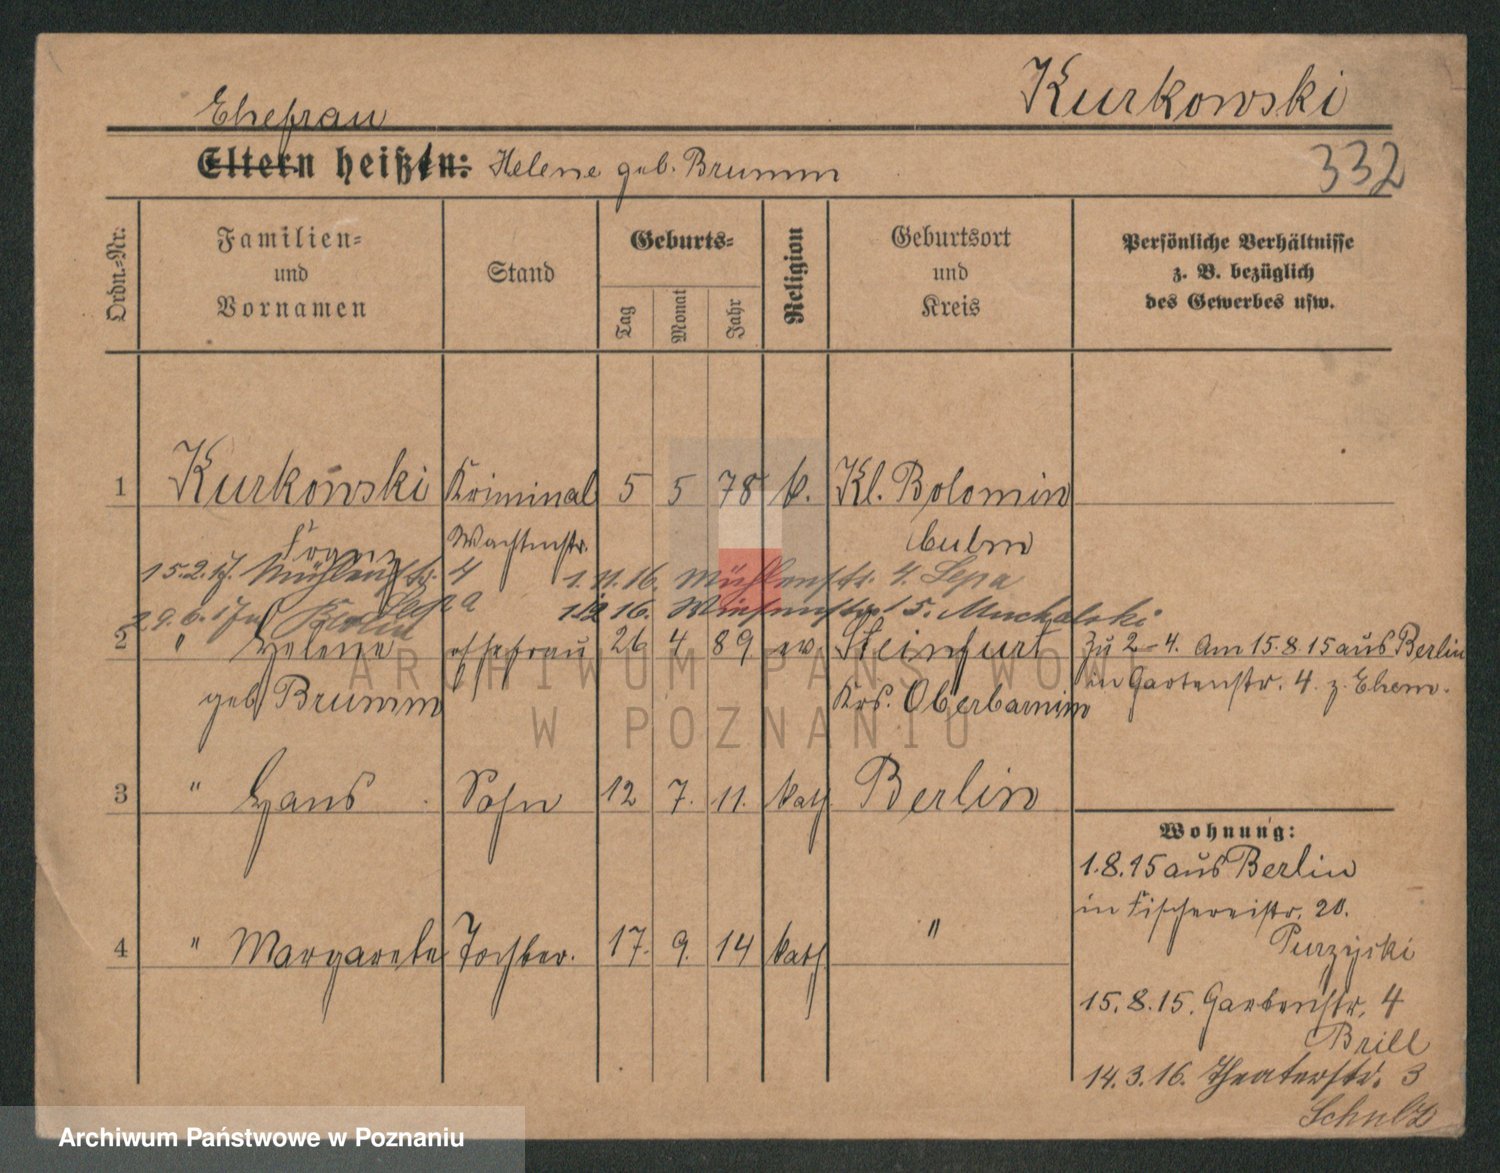 Kurkowski
Ehefrau
Eltern heißen: Helene geb. Brumm
332
Ordn.-Nr.
Familien-
und
Vornamen
Stand
Geburts-
Tag
Monat
Jahr
Religion
Geburtsort
und
Kreis
Persönliche Verhältnisse
z. B. bezüglich
des Gewerbes usw.
1 Kurkowski Kriminal 5 5 78 k. Kl. Bolomin
Franz Wachtmstr. Culm
15.2.17. Mühlenstr. 4 1.11.16. Mühlenstr. 4. Sepa
Sepa
29.6.17 1.12.16. Wiesenstr. 5. Muchalski
2 " Helene Ehefrau 26 4 89 ev. Steinfurt Zu 2-4. Am 15.8.15 aus Berlin
geb. Brumm Krs. Oberbarnim in Gartenstr. 4. z. Ehem.
3 " Hans Sohn 12 7. 11. kath Berlin
Wohnung:
1.8.15 aus Berlin
in Fischereistr. 20.
Purzycki
4 " Margarete Tochter. 17. 9. 14 kath "
15.8.15. Gartenstr. 4
Brill
14.3.16. Theaterstr. 3
Schulz
ARCHIWUM PAŃSTWOWE
W POZNANIU
Archiwum Państwowe w Poznaniu